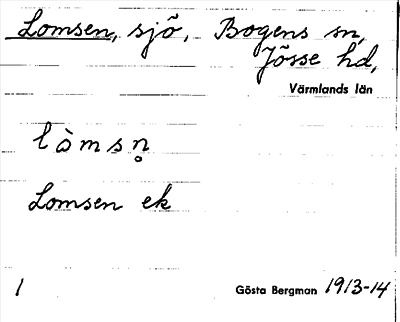 Lomsen, sjö, Bogens sn,
Jösse hd,
Värmlands län
lòmsn̥
Lomsen ek
1 Gösta Bergman 1913-14